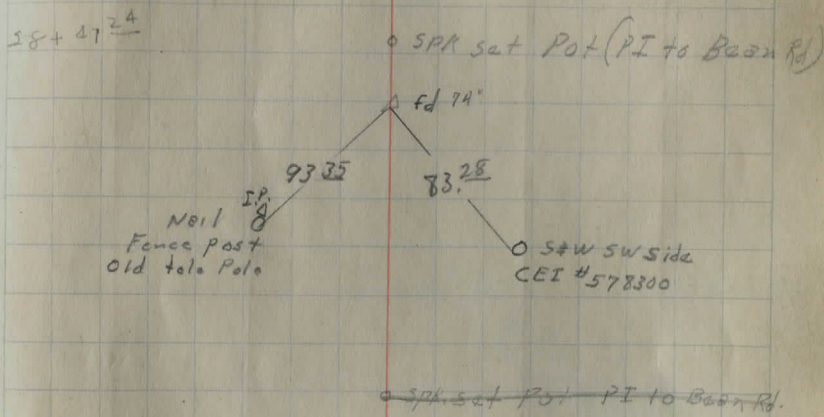 58+47 24
SPK set Pot (PI to Bean Rd)
fd 74"
93 35
83.28
I.P.
Nail
Fence post
Old tele Pole
S&W SW Side
CEI #578300
SPK. set Pot PI to Bean Rd.